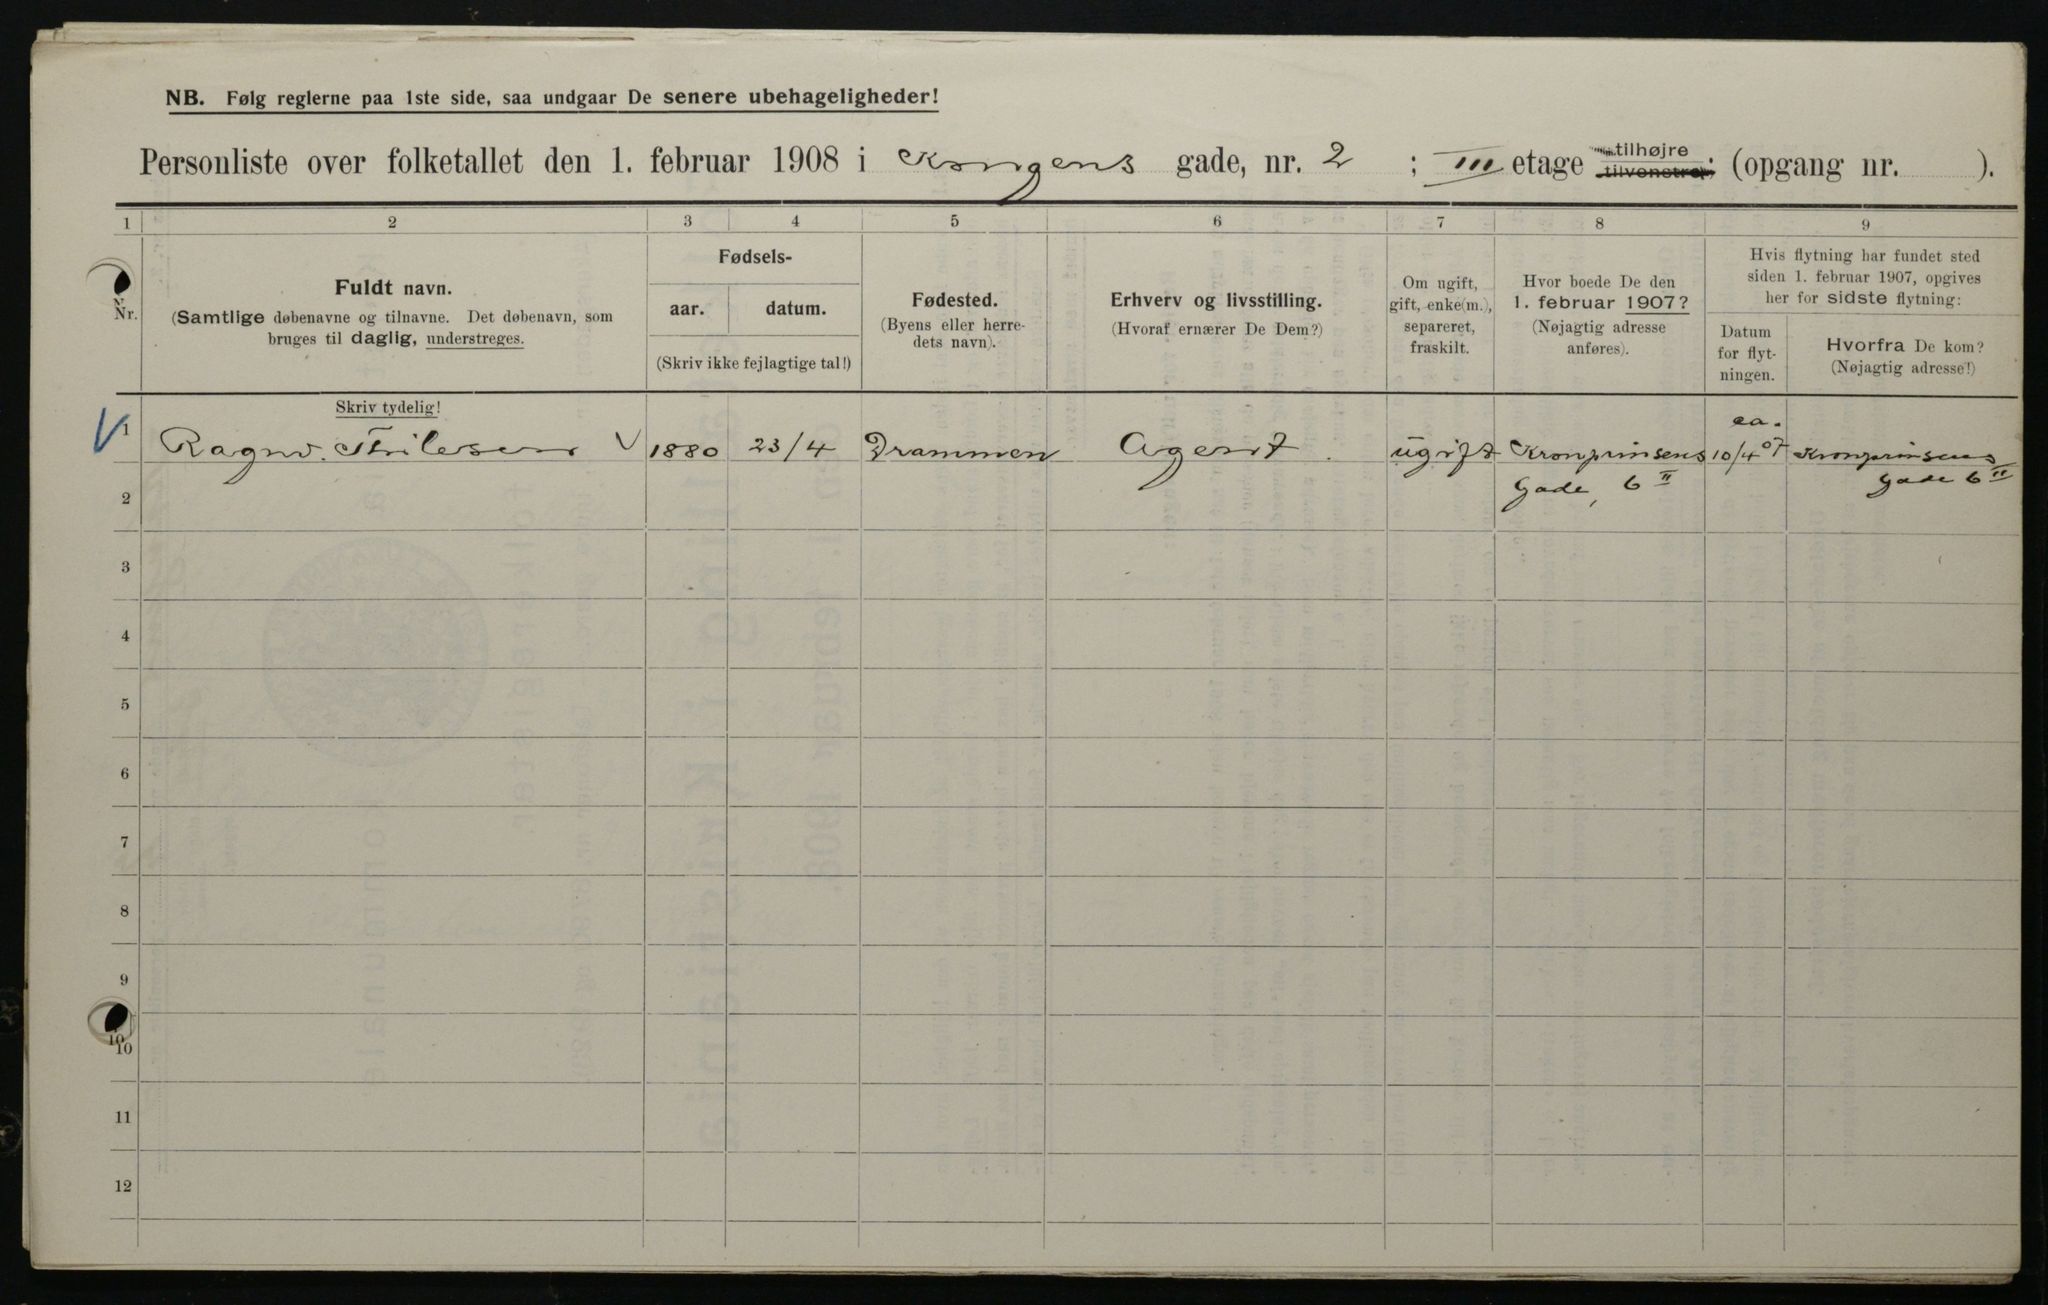 NB. Følg reglerne paa 1ste side, saa undgaar De senere ubehageligheder!
Personliste over folketallet den 1. februar 1908 i Kongens gade, nr. 2 ; III etage tilhøjre
tilvenstre; (opgang nr. ).
1 2 3 4 5 6 7 8 9
Nr.
Fuldt navn.
(Samtlige døbenavne og tilnavne. Det døbenavn, som
bruges til daglig, understreges.
Fødsels-
aar. datum.
(Skriv ikke fejlagtige tal!)
Fødested.
(Byens eller herre-
dets navn).
Erhverv og livsstilling.
(Hvoraf ernærer De Dem?)
Om ugift,
gift, enke(m.),
separeret,
fraskilt.
Hvor boede De den
1. februar 1907?
(Nøjagtig adresse
anføres).
Hvis flytning har fundet sted
siden 1. februar 1907, opgives
her for sidste flytning:
Datum
for flyt-
ningen.
Hvorfra De kom?
(Nøjagtig adresse!)
Skriv tydelig!
ca.
1 Ragnv. Thilesen V 1880 23/4 Drammen Agent. ugift Kronprinsens 10/4 07 Kronprinsens
2 Gade, 6 II Gade 6 II
3
4
5
6
7
8
9
10
10
11
12